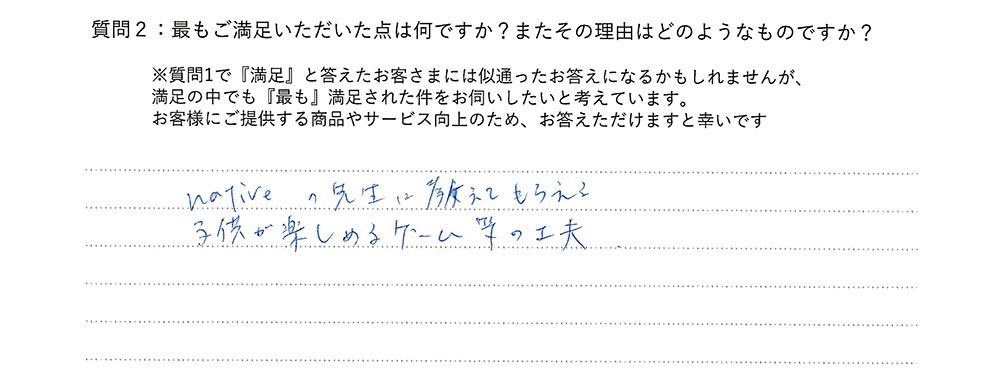 質問２：最もご満足いただいた点は何ですか？またその理由はどのようなものですか？
※質問1で『満足』と答えたお客さまには似通ったお答えになるかもしれませんが、
満足の中でも『最も』満足された件をお伺いしたいと考えています。
お客様にご提供する商品やサービス向上のため、お答えただけますと幸いです
nativeの先生に教えてもらえる
子供が楽しめるゲーム等の工夫.